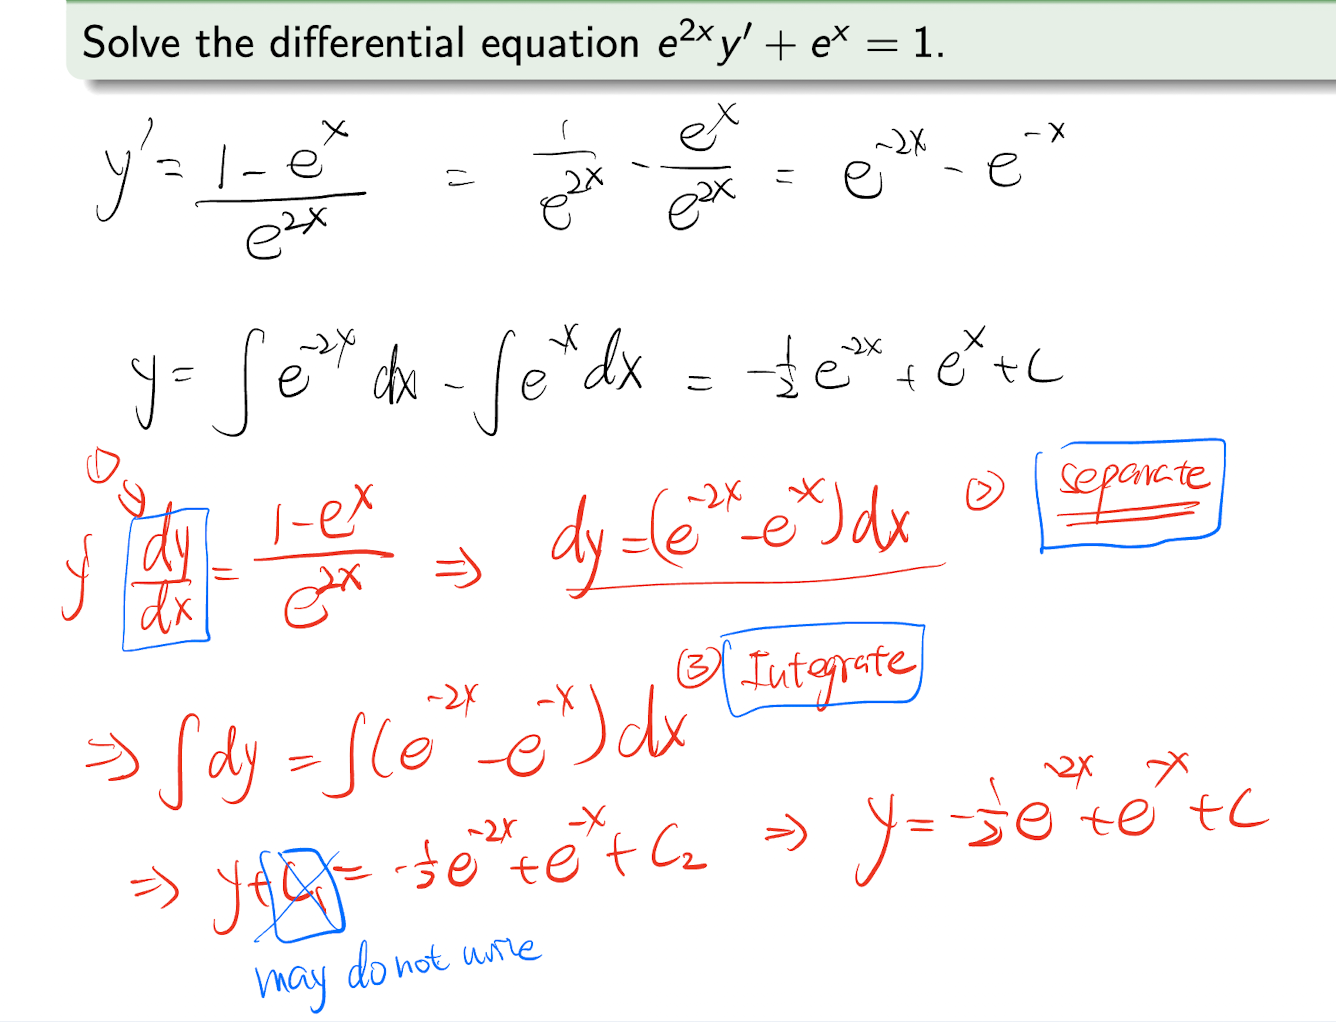 Solve the differential equation e^{2x}y' + e^x = 1.
y' = \frac{1-e^x}{e^{2x}} = \frac{1}{e^{2x}} - \frac{e^x}{e^{2x}} = e^{-2x} - e^{-x}
y = ∫ e^{-2x} dx - ∫ e^{-x} dx = -\frac{1}{2} e^{-2x} + e^x + C
① y' \frac{dy}{dx} = \frac{1-e^x}{e^{2x}} ⇒ dy = (e^{-2x} - e^{-x}) dx ② separate
③ Integrate
⇒ ∫ dy = ∫ (e^{-2x} - e^{-x}) dx
⇒ y + C_1 = -\frac{1}{2} e^{-2x} + e^{-x} + C_2 ⇒ y = -\frac{1}{2} e^{-2x} + e^{-x} + C
may do not write